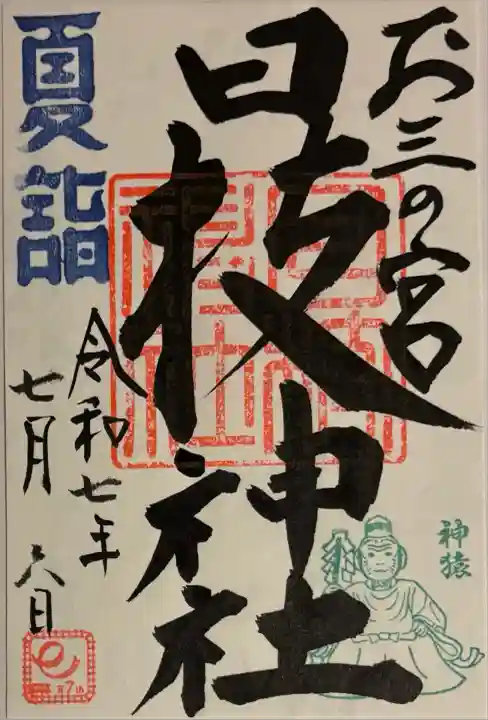 お三の宮
日枝神社
夏詣
令和七年
七月 六日
神猿